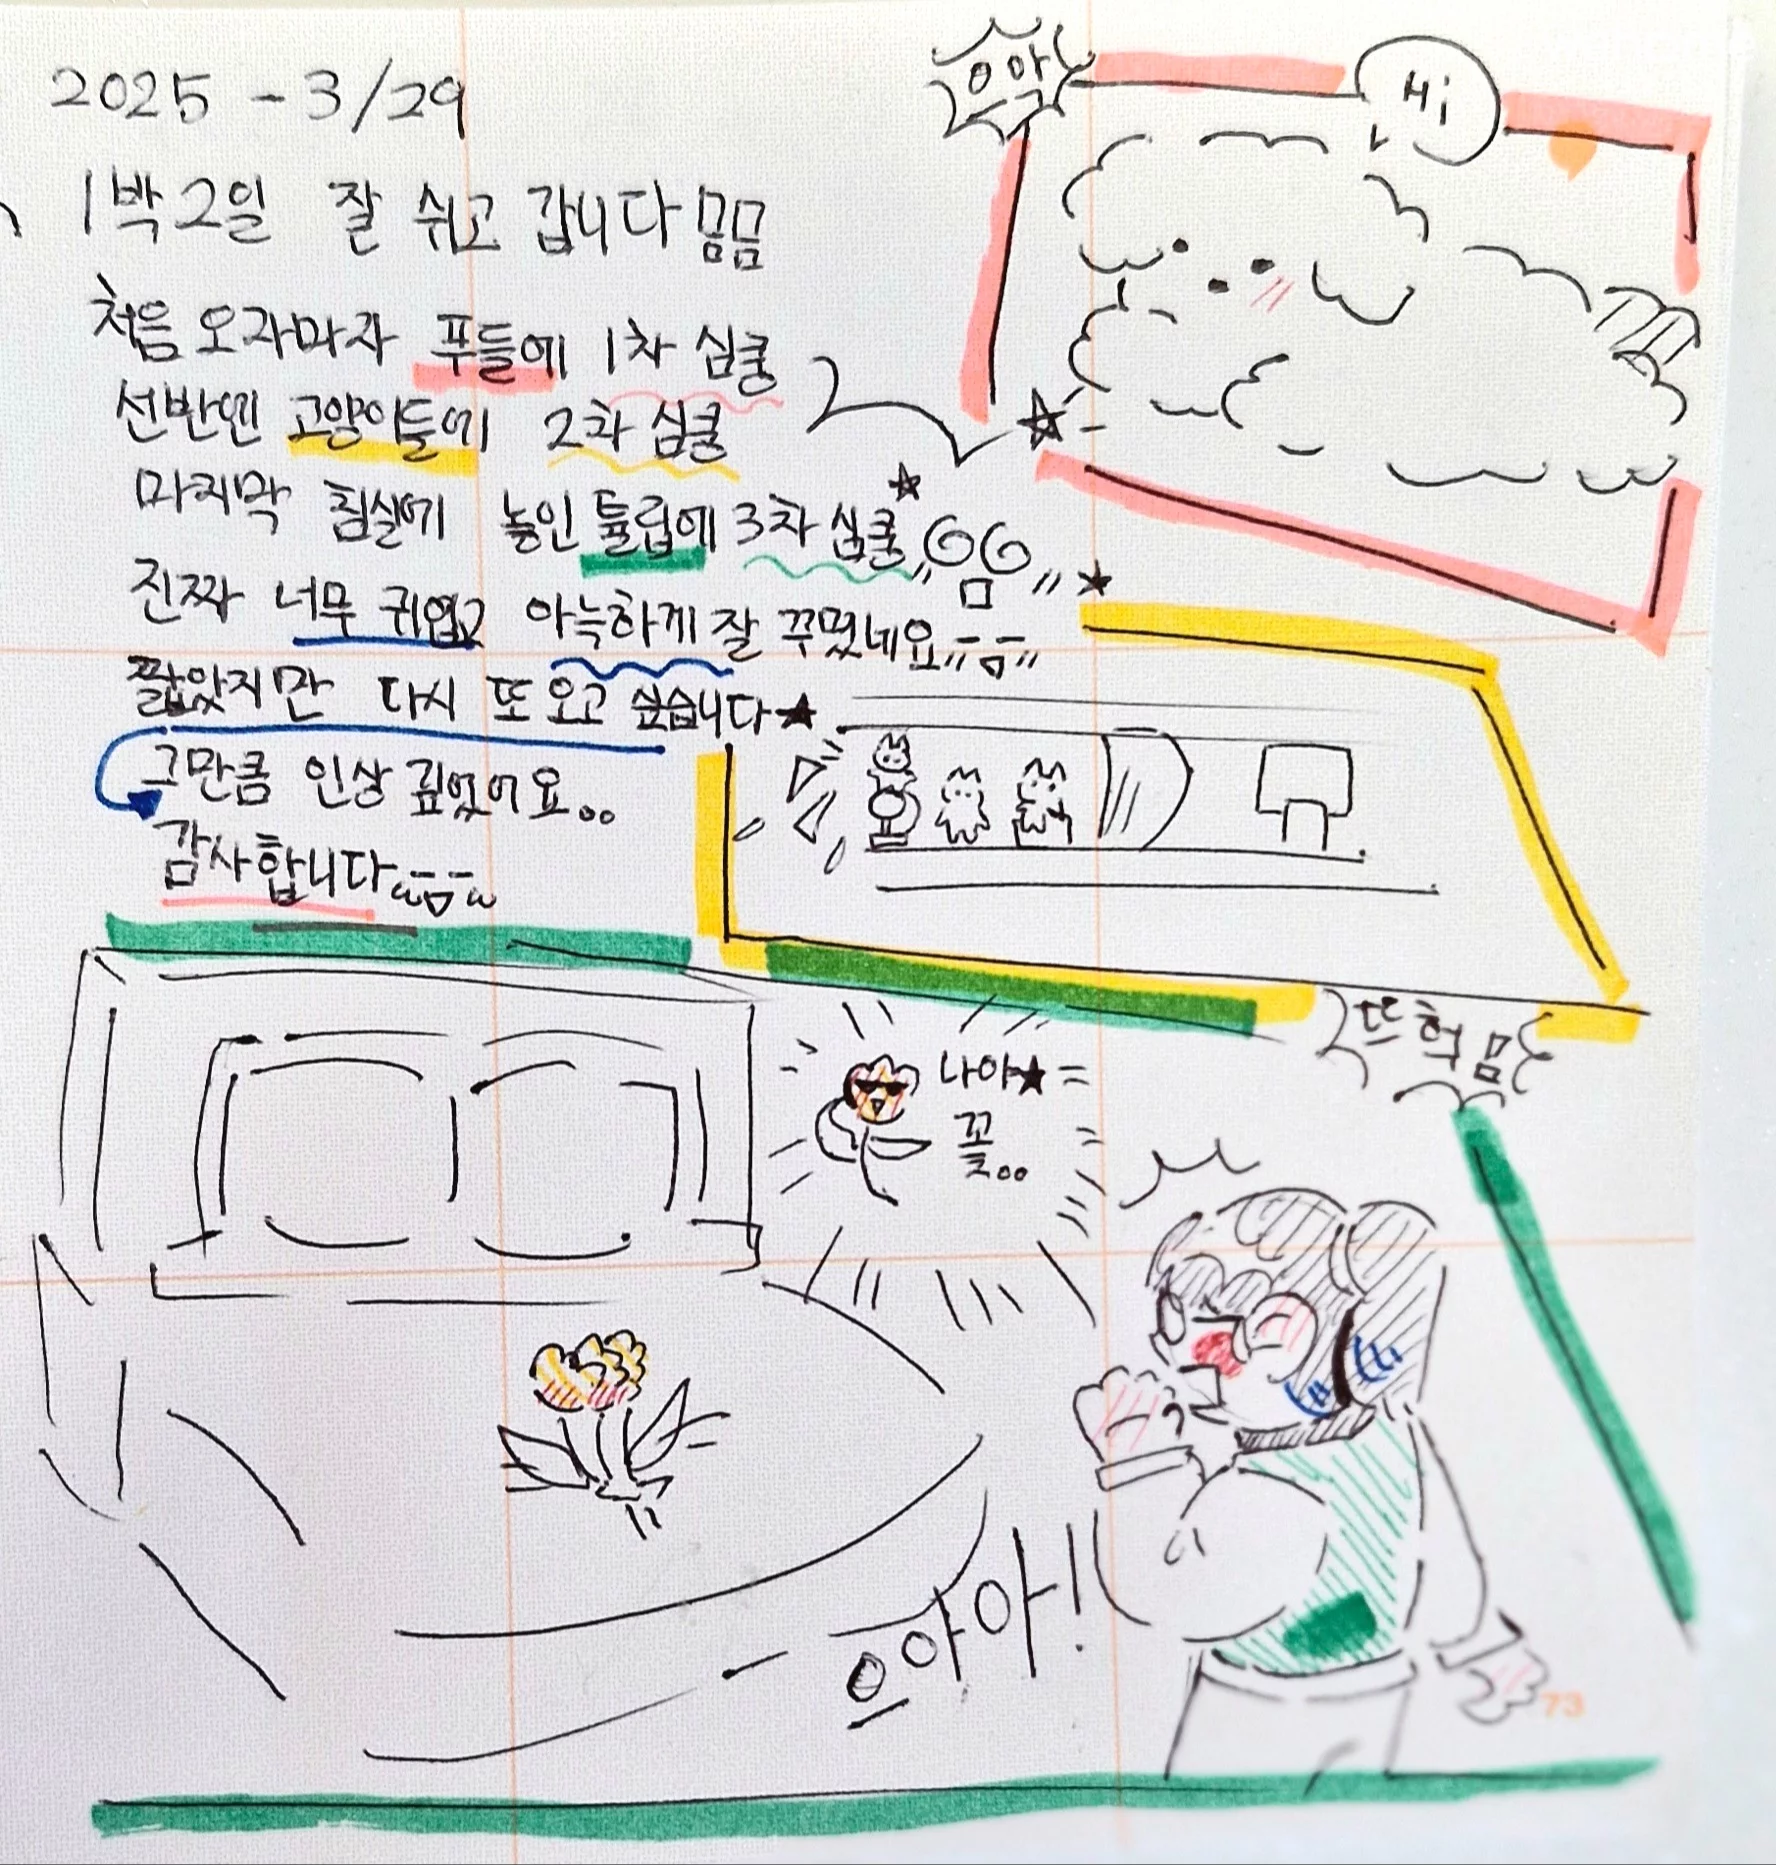 2025 - 3/29
1박 2일 잘 쉬고 갑니다 믐믐
처음 오자마자 푸들에 1차 심쿵
선반엔 고양이들에 2차 심쿵
마지막 침실에 놓인 튤립에 3차 심쿵
진짜 너무 귀엽고 아늑하게 잘 꾸몄네요
짧았지만 다시 또 오고 싶습니다★
그만큼 인상 깊었어요..
감사합니다
으악
Hi
뜨헉 믐
나야★
꽃..
으아아!
73